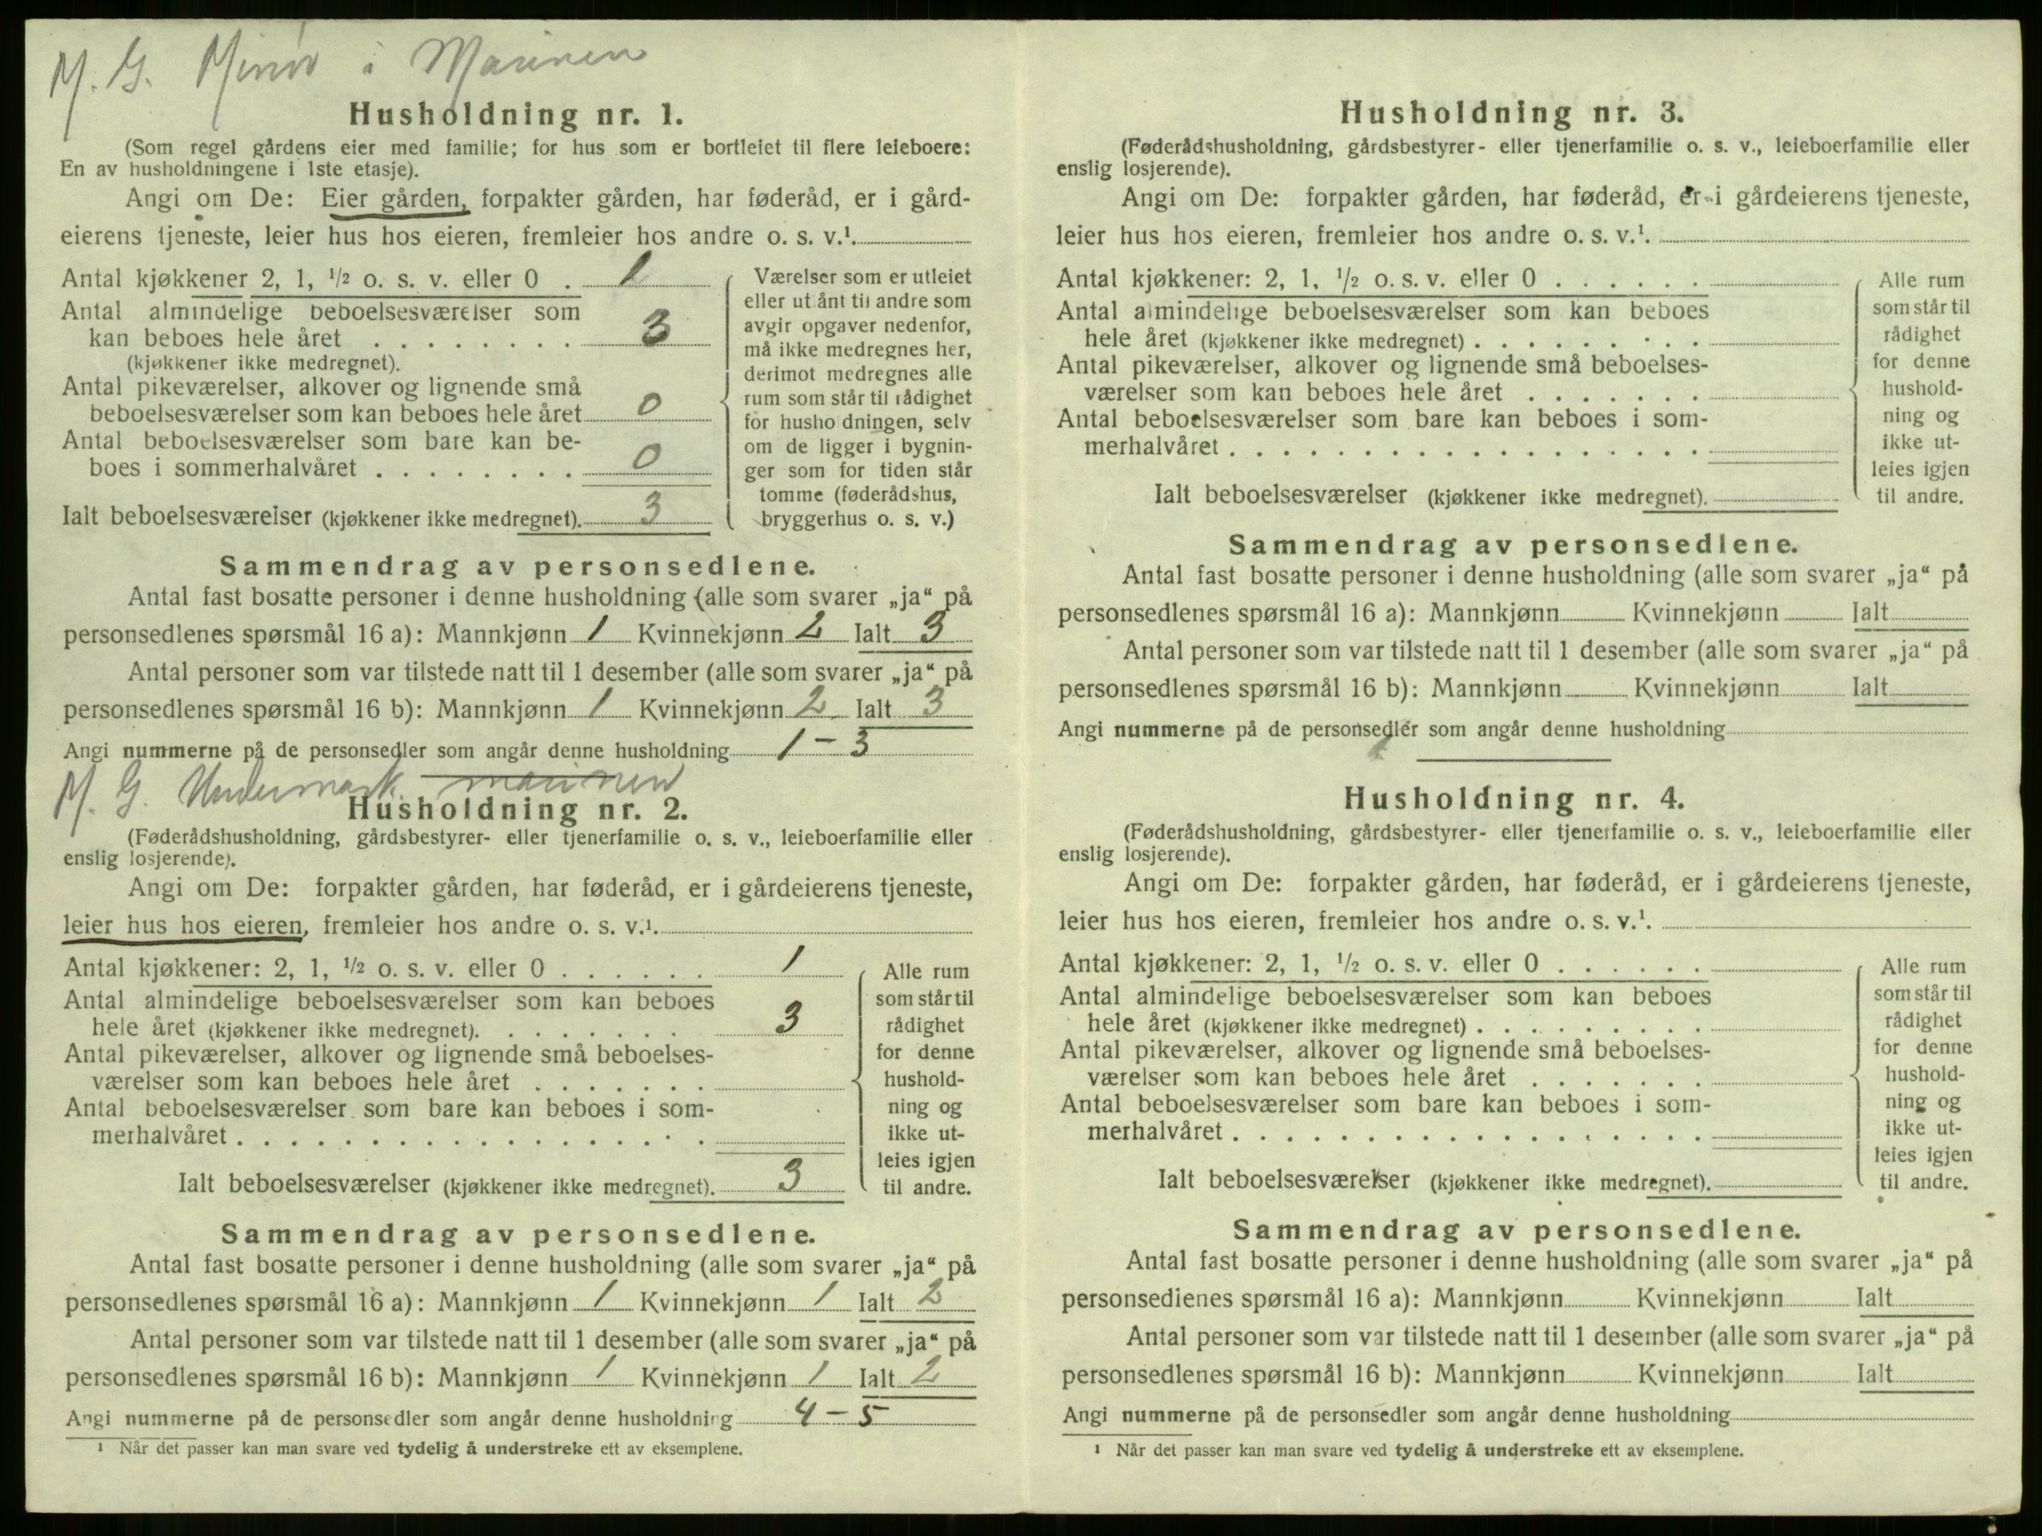 M. G. Minør i Marinen
Husholdning nr. 1.
(Som regel gårdens eier med familie; for hus som er bortleiet til flere leieboere:
En av husholdningene i 1ste etasje).
Angi om De: Eier gården, forpakter gården, har føderåd, er i gård-
eierens tjeneste, leier hus hos eieren, fremleier hos andre o. s. v.¹.
Antal kjøkkener 2, 1, ½ o. s. v. eller 0 . 1
Antal almindelige beboelsesværelser som
kan beboes hele året . . . . . . . . . 3
(kjøkkener ikke medregnet).
Antal pikeværelser, alkover og lignende små
beboelsesværelser som kan beboes hele året 0
Antal beboelsesværelser som bare kan be-
boes i sommerhalvåret . . . . . . . . 0
Ialt beboelsesværelser (kjøkkener ikke medregnet). 3
Værelser som er utleiet
eller utlånt til andre som
avgir opgaver nedenfor,
må ikke medregnes her,
derimot medregnes alle
rum som står til rådighet
for husho dningen, selv
om de ligger i bygnin-
ger som for tiden står
tomme (føderådshus,
bryggerhus o. s. v.)
Sammendrag av personsedlene.
Antal fast bosatte personer i denne husholdning (alle som svarer „ja“ på
personsedlenes spørsmål 16 a): Mannkjønn 1 Kvinnekjønn 2 Ialt 3
Antal personer som var tilstede natt til 1 desember (alle som svarer „ja“ på
personsedlenes spørsmål 16 b): Mannkjønn 1 Kvinnekjønn 2 Ialt 3
Angi nummerne på de personsedler som angår denne husholdning 1 – 3
M. G. Undermask. marinen
Husholdning nr. 2.
(Føderådshusholdning, gårdsbestyrer- eller tjenerfamilie o. s. v., leieboerfamilie eller
enslig losjerende).
Angi om De: forpakter gården, har føderåd, er i gårdeierens tjeneste,
leier hus hos eieren, fremleier hos andre o. s. v.¹.
Antal kjøkkener: 2, 1, ½ o. s. v. eller 0 . . . . . . 1
Antal almindelige beboelsesværelser som kan beboes
hele året (kjøkkener ikke medregnet). . . . . . . . 3
Antal pikeværelser, alkover og lignende små beboelses-
værelser som kan beboes hele året . . . . . . .
Antal beboelsesværelser som bare kan beboes i som-
merhalvåret . . . . . . . . . . . . . . . . . .
Ialt beboelsesværelser (kjøkkener ikke medregnet). 3
Alle rum
som står til
rådighet
for denne
hushold-
ning og
ikke ut-
leies igjen
til andre.
Sammendrag av personsedlene.
Antal fast bosatte personer i denne husholdning (alle som svarer „ja“ på
personsedlenes spørsmål 16 a): Mannkjønn 1 Kvinnekjønn 1 Ialt 2
Antal personer som var tilstede natt til 1 desember (alle som svarer „ja“ på
personsedlenes spørsmål 16 b): Mannkjønn 1 Kvinnekjønn 1 Ialt 2
Angi nummerne på de personsedler som angår denne husholdning 4 – 5
¹ Når det passer kan man svare ved tydelig å understreke ett av eksemplene.
Husholdning nr. 3.
(Føderådshusholdning, gårdsbestyrer- eller tjenerfamilie o. s. v., leieboerfamilie eller
enslig losjerende).
Angi om De: forpakter gården, har føderåd, er i gårdeierens tjeneste,
leier hus hos eieren, fremleier hos andre o. s. v.¹.
Antal kjøkkener: 2, 1, ½ o. s. v. eller 0 . . . . . .
Antal almindelige beboelsesværelser som kan beboes
hele året (kjøkkener ikke medregnet) . . . . . . . . .
Antal pikeværelser, alkover og lignende små beboelses-
værelser som kan beboes hele året . . . . . . .
Antal beboelsesværelser som bare kan beboes i som-
merhalvåret . . . . . . . . . . . . . . . . . .
Ialt beboelsesværelser (kjøkkener ikke medregnet).
Alle rum
som står til
rådighet
for denne
hushold-
ning og
ikke ut-
leies igjen
til andre.
Sammendrag av personsedlene.
Antal fast bosatte personer i denne husholdning (alle som svarer „ja“ på
personsedlenes spørsmål 16 a): Mannkjønn Kvinnekjønn Ialt
Antal personer som var tilstede natt til 1 desember (alle som svarer „ja“ på
personsedlenes spørsmål 16 b): Mannkjønn Kvinnekjønn Ialt
Angi nummerne på de personsedler som angår denne husholdning
Husholdning nr. 4.
(Føderådshusholdning, gårdsbestyrer- eller tjenerfamilie o. s. v., leieboerfamilie eller
enslig losjerende).
Angi om De: forpakter gården, har føderåd, er i gårdeierens tjeneste,
leier hus hos eieren, fremleier hos andre o. s. v.¹.
Antal kjøkkener: 2, 1, ½ o. s. v. eller 0 . . . . . .
Antal almindelige beboelsesværelser som kan beboes
hele året (kjøkkener ikke medregnet) . . . . . . . . .
Antal pikeværelser, alkover og lignende små beboelses-
værelser som kan beboes hele året . . . . . . .
Antal beboelsesværelser som bare kan beboes i som-
merhalvåret . . . . . . . . . . . . . . . . . .
Ialt beboelsesværelser (kjøkkener ikke medregnet).
Alle rum
som står til
rådighet
for denne
hushold-
ning og
ikke ut-
leies igjen
til andre.
Sammendrag av personsedlene.
Antal fast bosatte personer i denne husholdning (alle som svarer „ja“ på
personsedlenes spørsmål 16 a): Mannkjønn Kvinnekjønn Ialt
Antal personer som var tilstede natt til 1 desember (alle som svarer „ja“ på
personsedlenes spørsmål 16 b): Mannkjønn Kvinnekjønn Ialt
Angi nummerne på de personsedler som angår denne husholdning
¹ Når det passer kan man svare ved tydelig å understreke ett av eksemplene.